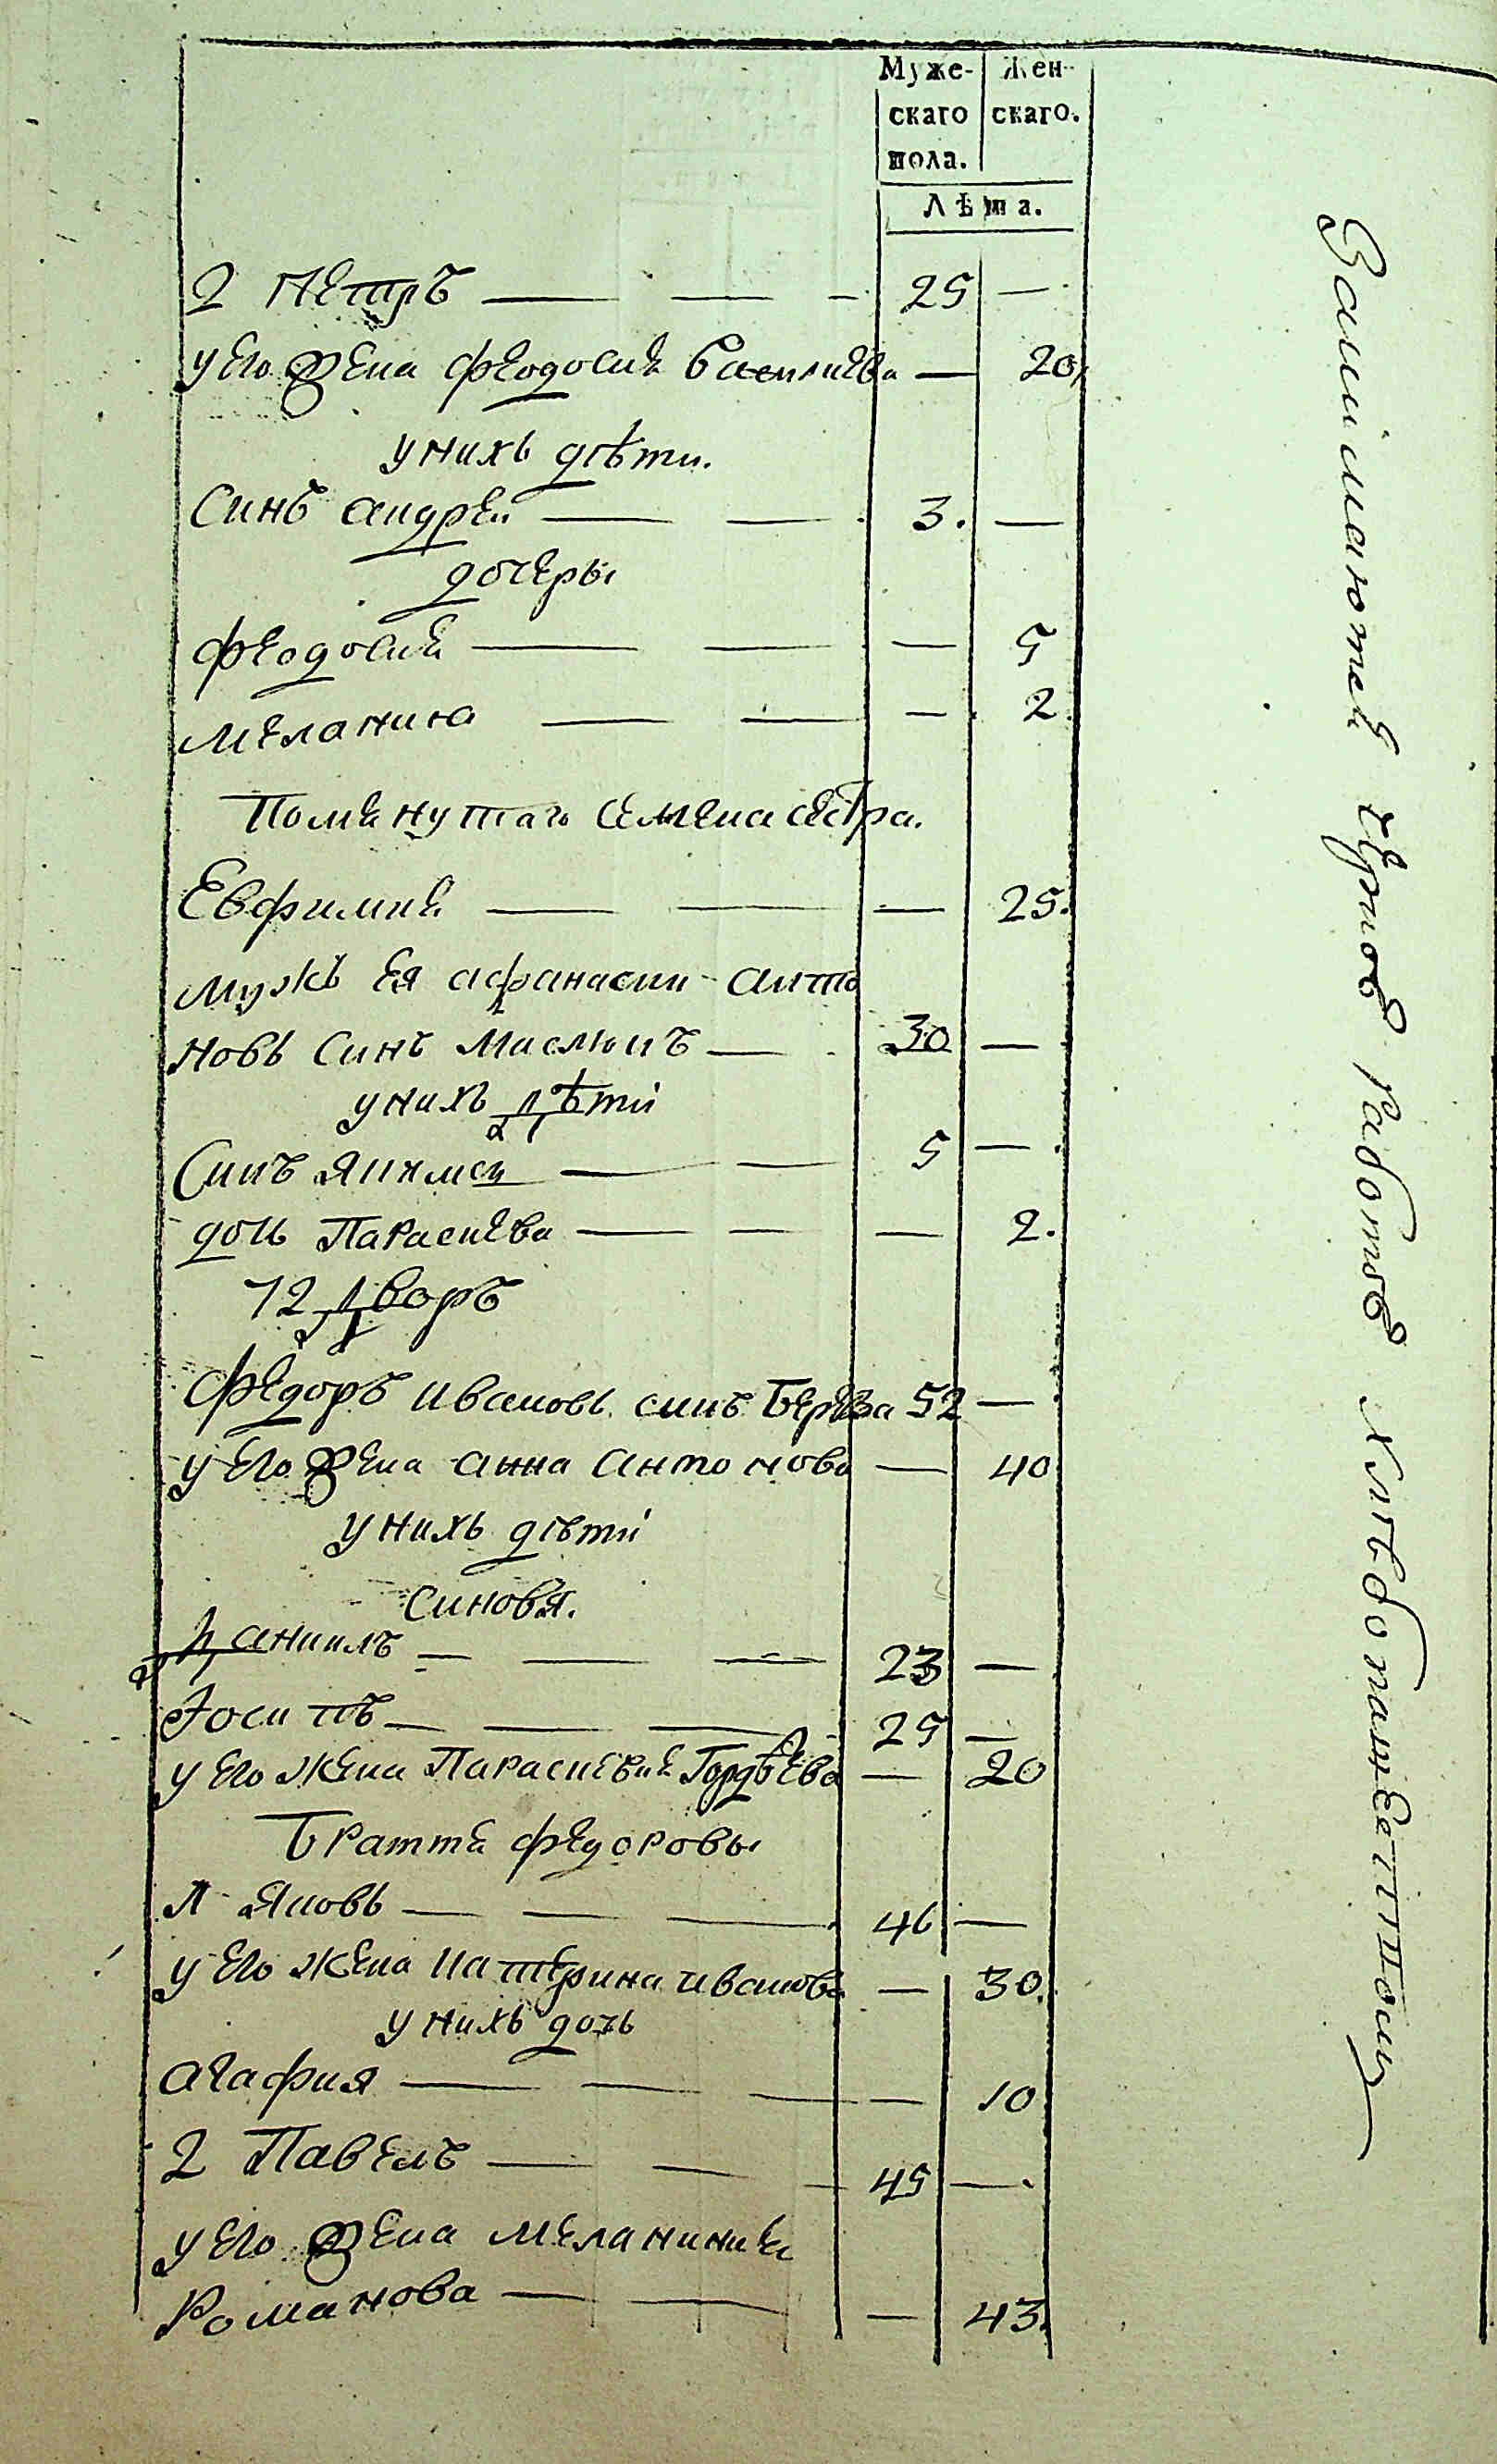 Муже- Жен-
скаго скаго.
пола.
Лѣта.
2 Петръ — — — 25 —
у его жена Феодосия Василиева — 20
у нихъ дѣти.
Синъ андреи — — 3. —
дочеры
Феодосия — — — 5
Мелания — — — 2
Помянутаго Семена сестра.
Евфимия — — — 25.
мужъ ея афанасии анто
новъ синъ Маслюкъ — 30 —
у нихъ дѣти
Синъ Якимъ — — 5 —
дочь Параскева — — — 2.
12 дворъ
Федоръ ивановъ синъ Береза 52 —
у его жена анна антонова — 40
у нихъ дѣти
синовя.
Даниилъ — — — 23 —
Іосипъ — — — 25 —
у его жена Параскевия Гордѣева — 20
Братия Федоровы
1 Яковъ — — — 46 —
у его жена Катерина иванова — 30.
у нихъ дочь
агафия — — — — 10
2 Павелъ — — — 45 —.
у его жена Мелания
Романова — — — 43.
Занимаются черною работою хлѣбопашественною